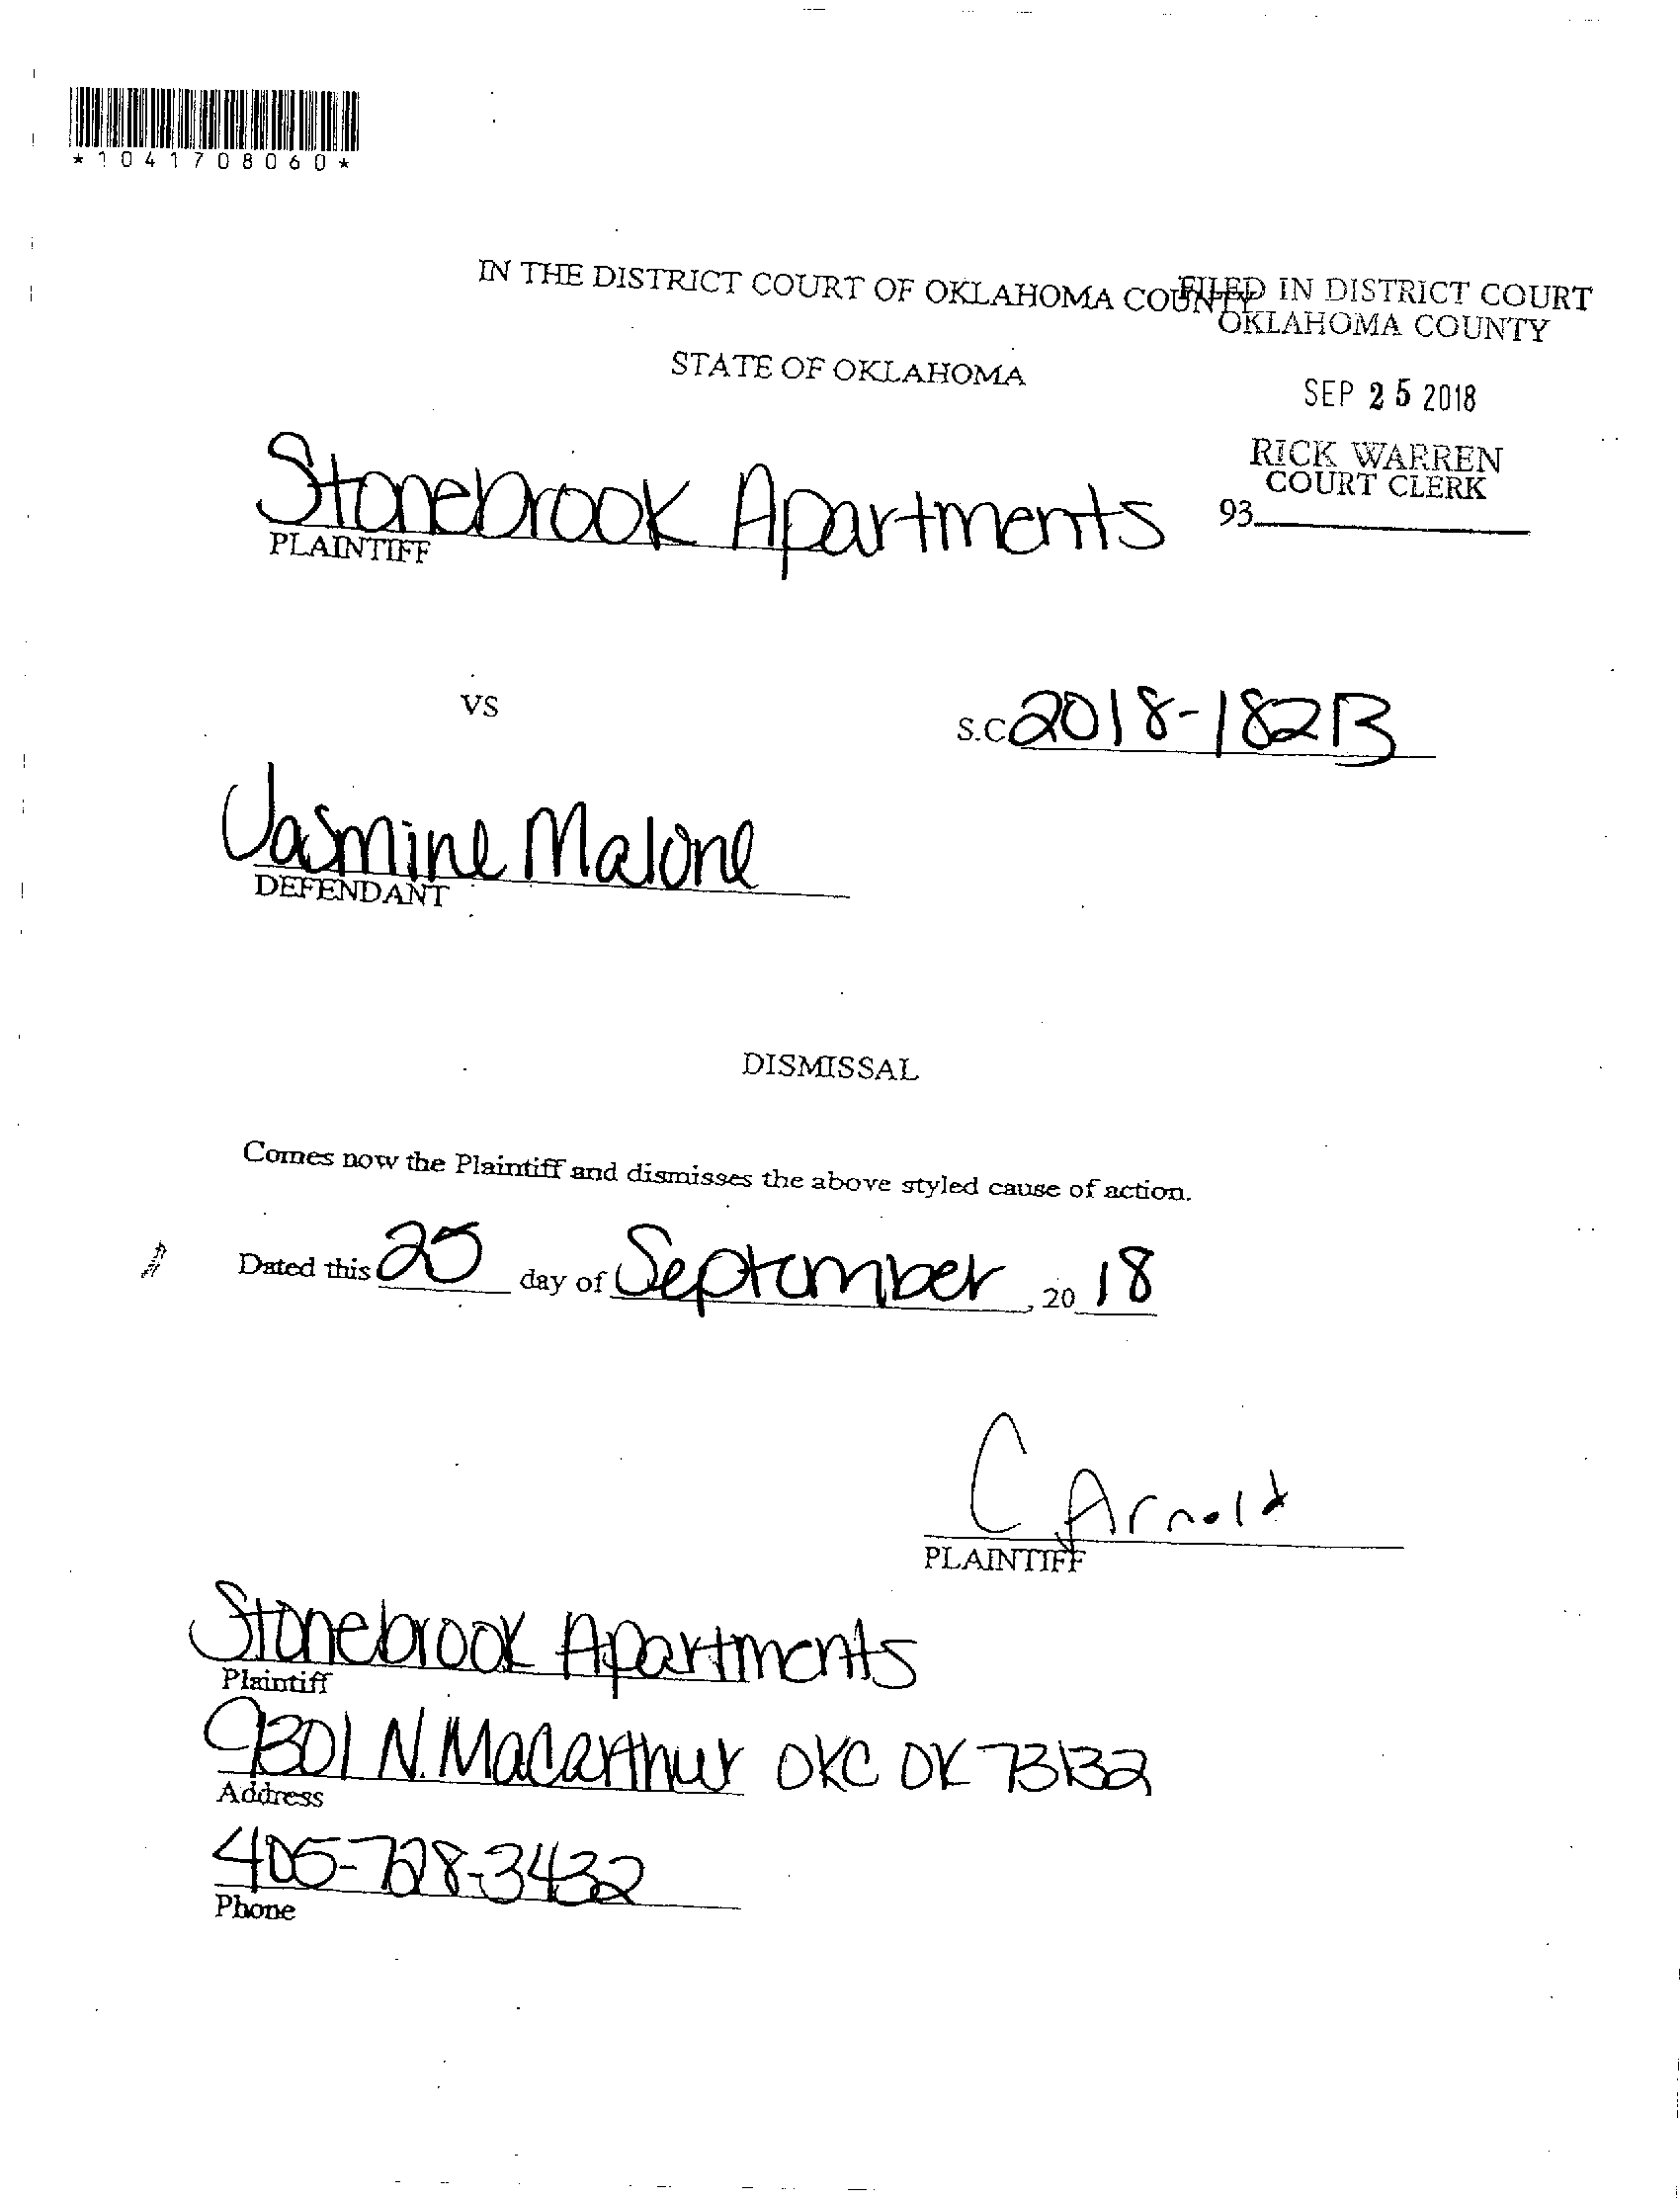 *1041708060*
IN THE DISTRICT COURT OF OKLAHOMA COUNTY
FILED IN DISTRICT COURT
OKLAHOMA COUNTY
STATE OF OKLAHOMA
SEP 25 2018
RICK WARREN
COURT CLERK
93
Stonebrook Apartments
PLAINTIFF
VS
S.C 2018-182B
Jasmine Malone
DEFENDANT
DISMISSAL
Comes now the Plaintiff and dismisses the above styled cause of action.
Dated this 25 day of September, 20 18
C Arnold
PLAINTIFF
Stonebrook Apartments
Plaintiff
9301 N. Macarthur OKC OK 73132
Address
405-728-3432
Phone